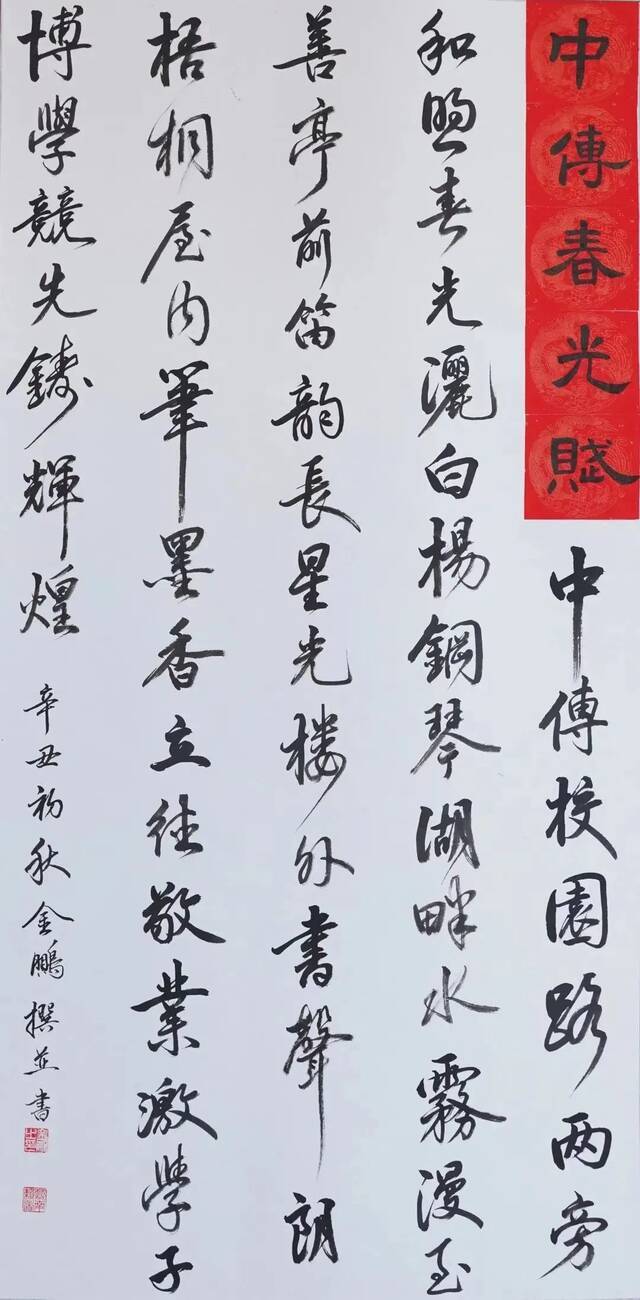 中傳春光賦
中傳校園路两旁
和煦春光灑白楊鋼琴湖畔水霧漫至
善亭前笛韵長星光楼外書聲朗
梧桐屋内筆墨香立往敬業激學子
博學競先鑄輝煌
辛丑初秋金鵬撰並書